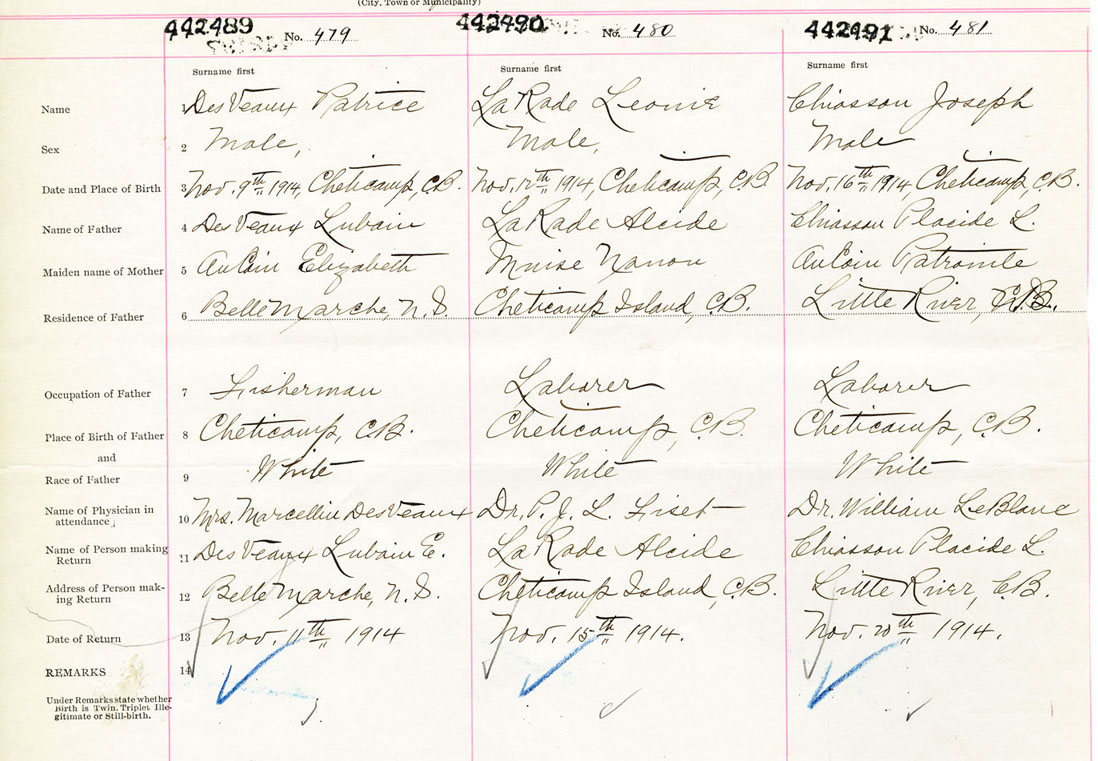 (City, Town or Municipality)
442489 No. 479 442490 No. 480 442491 No. 481
Surname first Surname first Surname first
Name 1 DesVeaux Patrice LaRade Leonie Chiasson Joseph
Sex 2 Male, Male, Male
Date and Place of Birth 3 Nov. 9th 1914, Cheticamp, C.B. Nov. 12th 1914, Cheticamp, C.B. Nov. 16th 1914, Cheticamp, C.B.
Name of Father 4 DesVeaux Lubain LaRade Alcide Chiasson Placide L.
Maiden name of Mother 5 AuCoin Elizabeth Muise Nanon AuCoin Patronile
Residence of Father 6 Belle Marche, N.S. Cheticamp Island, C.B. Little River, C.B.
Occupation of Father 7 Fisherman Laborer Laborer
Place of Birth of Father 8 Cheticamp, C.B. Cheticamp, C.B. Cheticamp, C.B.
and
Race of Father 9 White White White
Name of Physician in
attendance 10 Mrs. Marcellin DesVeaux Dr. P. J. L. Fiset Dr. William LeBlanc
Name of Person making
Return 11 DesVeaux Lubain E. LaRade Alcide Chiasson Placide L.
Address of Person mak-
ing Return 12 Belle Marche, N.S. Cheticamp Island, C.B. Little River, C.B.
Date of Return 13 Nov. 11th 1914 Nov. 15th 1914. Nov. 20th 1914.
REMARKS 14
Under Remarks state whether
Birth is Twin, Triplet Ille-
gitimate or Still-birth.